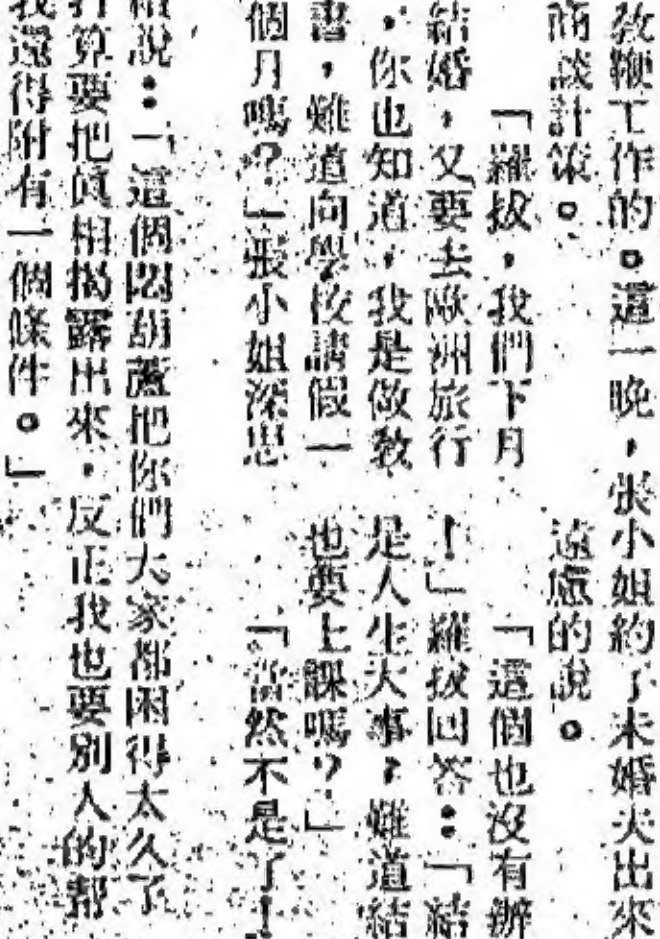 教鞭工作的。這一晚,張小姐約了未婚夫出來
商談計策。
「羅拔,我們下月
結婚,又要去歐洲旅行
,你也知道,我是做教
書,難道向學校請假一
個月嗎?」張小姐深思
遠慮的說。
「這個也沒有辦
!」羅拔回答:「結
是人生大事,難道結
也要上課嗎?」
「當然不是了!
說:「這個悶葫蘆把你們大家都困得太久了
打算要把眞相揭露出來,反正我也要別人的幫
我還得附有一個條件。」